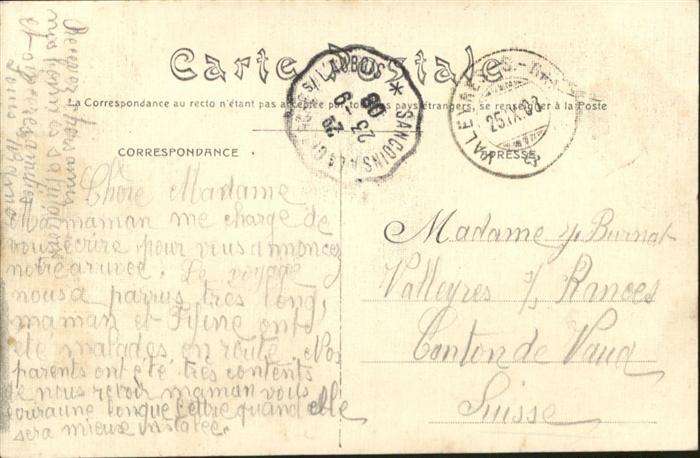 Carte Postale
La Correspondance au recto n'étant pas acceptée par tous les pays étrangers, se renseigner à la Poste
CORRESPONDANCE
ADRESSE
SANCOINS A LA G S/ L'AUBOIS
23 -9
08
VALEYRES-S.-
25.IX.08
Chère Madame
maman me charge de
vous écrire pour vous annoncer
notre arrivée. Le voyage
nous a parrus très long,
maman et Fifine ont
été malades en route. Nos
parents ont été très contents
de nous revoir maman vous
lettre quand elle
sera mieux installée.
Recevez
nos bonnes
et
Madame W Burnat
Valleyres s/ Rances
Conton de Vaud
Suisse